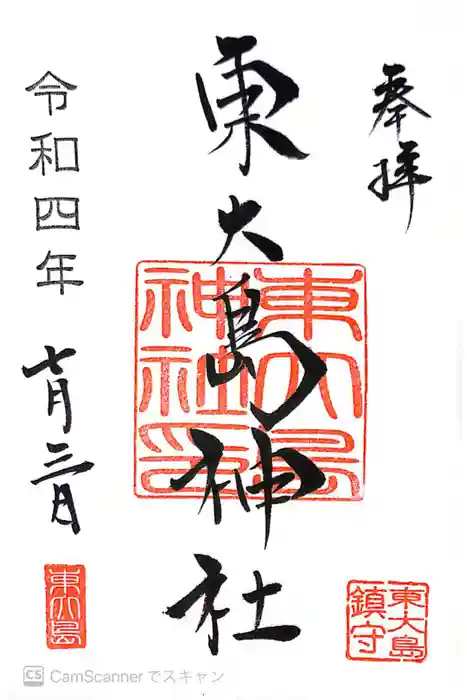 奉拝
東大島神社
東大島神社印
令和四年
七月三日
東大島
東大島
鎮守
CS CamScannerでスキャン